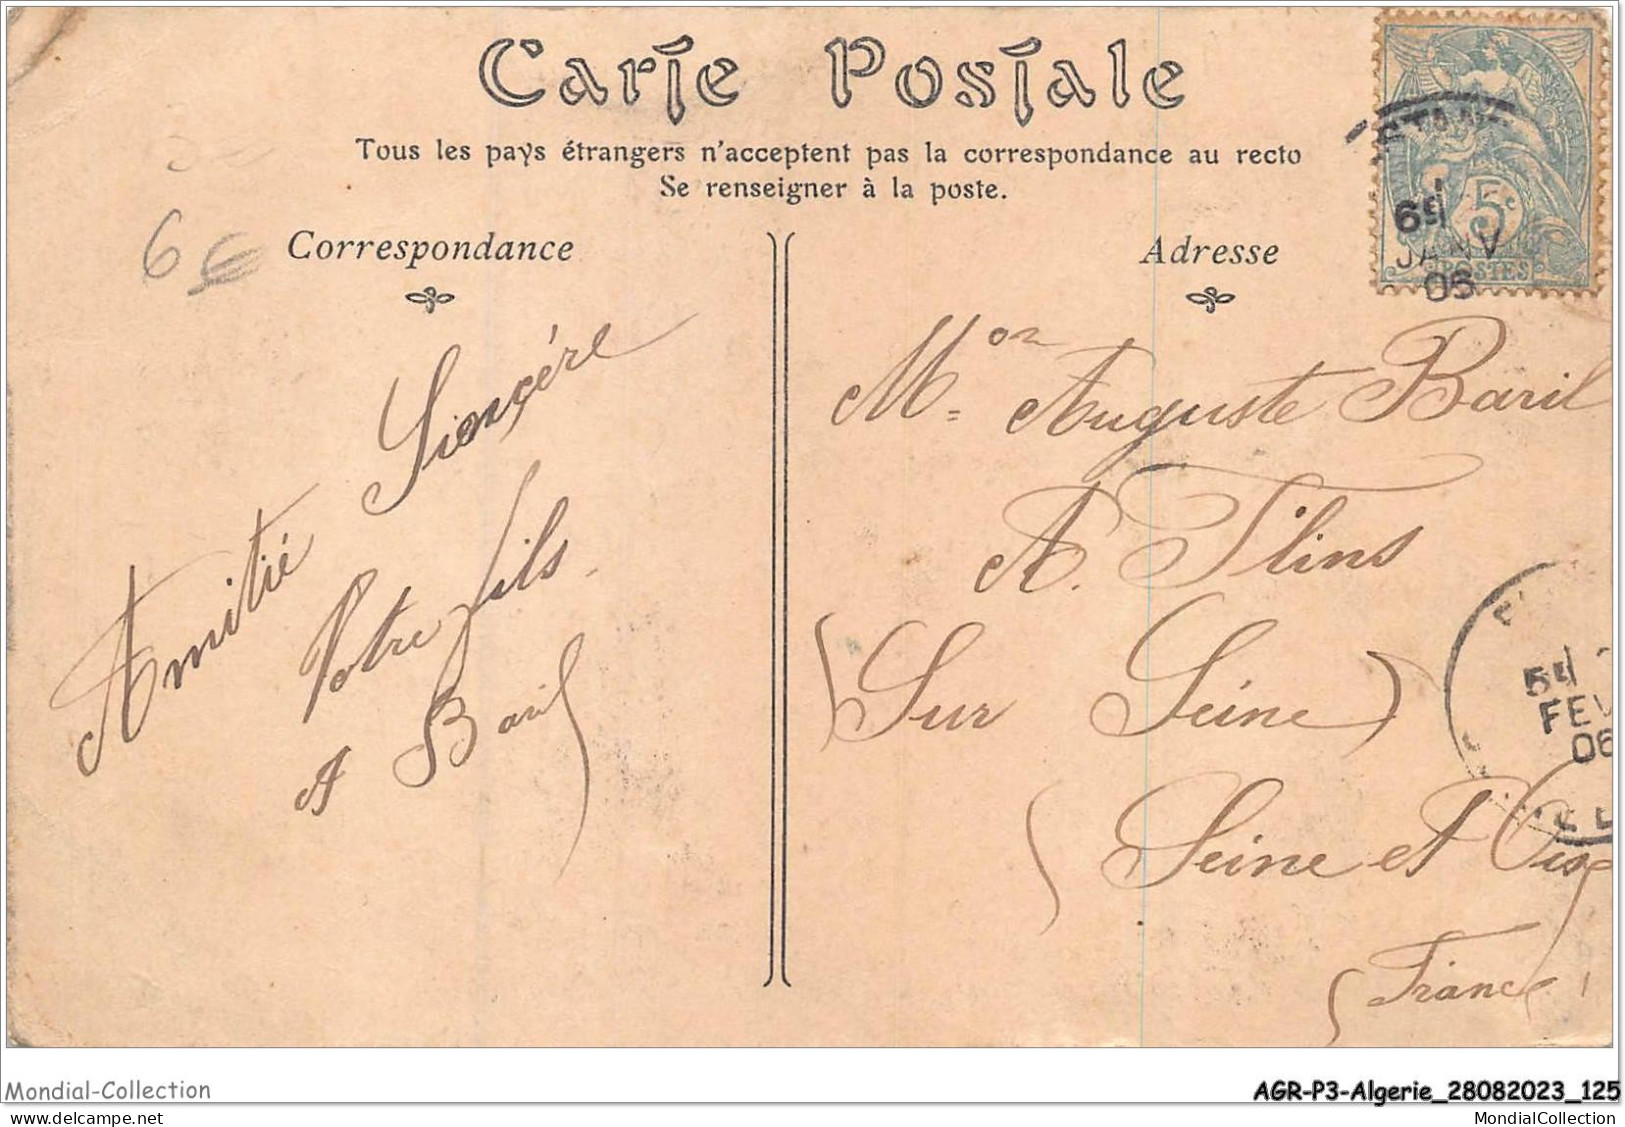 Carte Postale
Tous les pays étrangers n'acceptent pas la correspondance au recto
Se renseigner à la poste.
Correspondance
Adresse
6 €
5c
POSTES
JANV
06
Amitié Siençére
Votre fils
A Baril
Mon = Auguste Baril
A. Flins
(Sur Seine)
(Seine et Oise)
(France)
FEV
06
Mondial-Collection
AGR-P3-Algerie_28082023_125
MondialCollection